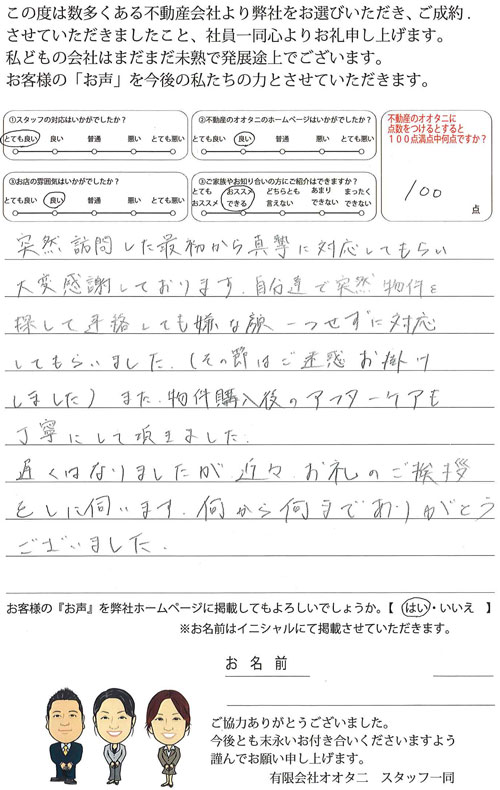 この度は数多くある不動産会社より弊社をお選びいただき、ご成約.
させていただきましたこと、社員一同心よりお礼申し上げます。
私どもの会社はまだまだ未熟で発展途上でございます。
お客様の「お声」を今後の私たちの力とさせていただきます。
①スタッフの対応はいかがでしたか？
とても良い 良い 普通 悪い とても悪い
②不動産のオオタニのホームページはいかがでしたか？
とても良い 良い 普通 悪い とても悪い
③お店の雰囲気はいかがでしたか？
とても良い 良い 普通 悪い とても悪い
③ご家族やお知り合いの方にご紹介はできますか？
とても オススメ どちらとも あまり まったく
おススメ できる 言えない できない できない
不動産のオオタニに
点数をつけるとすると
１００点満点中何点ですか？
100
点
突然訪問した最初から真摯に対応してもらい
大変感謝しております。自分達で突然物件を
探して連絡しても嫌な顔一つせずに対応
してもらいました。（その節はご迷惑お掛け
しました）また、物件購入後のアフターケアも
丁寧にして頂きました。
遅くはなりましたが近々、お礼のご挨拶
をしに伺います。何から何までありがとう
ございました。
お客様の『お声』を弊社ホームページに掲載してもよろしいでしょうか。【 はい・いいえ 】
※お名前はイニシャルにて掲載させていただきます。
お 名 前
ご協力ありがとうございました。
今後とも末永いお付き合いくださいますよう
謹んでお願い申し上げます。
有限会社オオタニ スタッフ一同